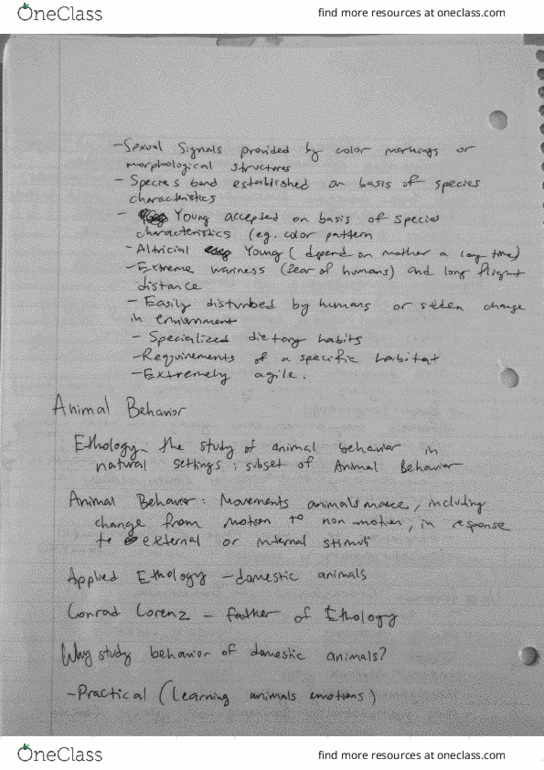 OneClass
find more resources at oneclass.com
-Sexual Signals provided by color markings or
morphological structures
-Species bond established on basis of species
characteristics
- Young accepted on basis of species
characteristics (eg. color pattern
-Altricial Young (depend on mother a long time)
-Extreme wariness (fear of humans) and long flight
distance
-Easily disturbed by humans or change
in enviornment
-Specialized dietary habits
-Requirements of a specific habitat
-Extremely agile.
Animal Behavior
Ethology- the study of animal behavior in
natural settings; subset of Animal Behavior
Animal Behavior: Movements animals make, including
change from motion to non motion, in response
to external or internal stimuli
Applied Ethology -domestic animals
Conrad Lorenz - father of Ethology
Why study behavior of domestic animals?
-Practical (learning animals emotions)
OneClass
find more resources at oneclass.com